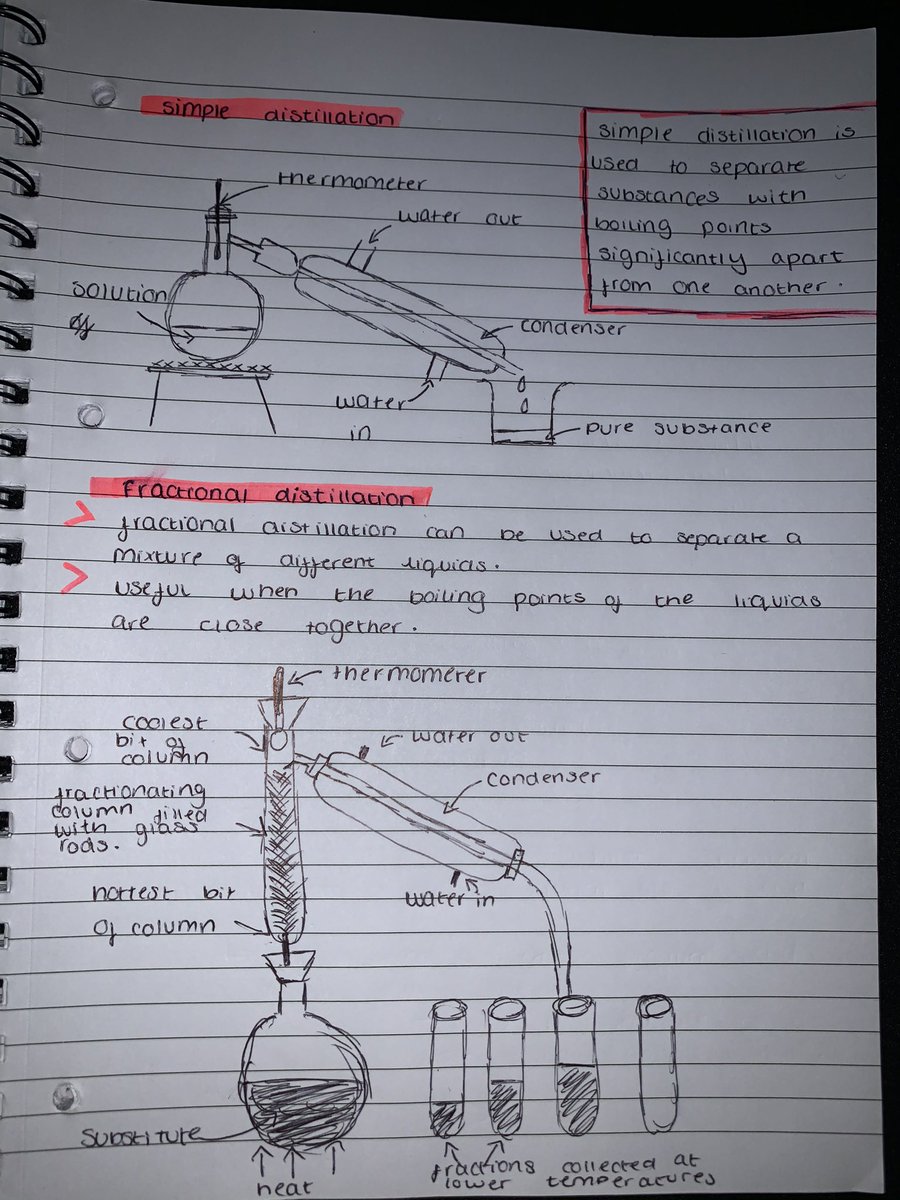 simple distillation
simple distillation is
used to separate
substances with
boiling points
significantly apart
from one another.
thermometer
water out
solution
of
condenser
water
in
pure substance
Fractional distillation
> fractional distillation can be used to separate a
mixture of different liquids.
> useful when the boiling points of the liquids
are close together.
thermometer
coolest
bit of
column
water out
condenser
fractionating
column filled
with glass
rods.
hottest bit
of column
water in
substitute
heat
fractions collected at
lower temperatures